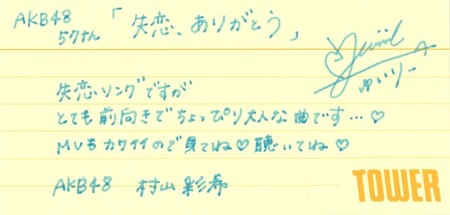 AKB48
57thさん 「失恋、ありがとう」
失恋ソングですが
とても前向きでちょっぴり大人な曲です…♡
MVもカワイイので見てね♡聴いてね♡
AKB48 村山彩希
ゆいりー
TOWER